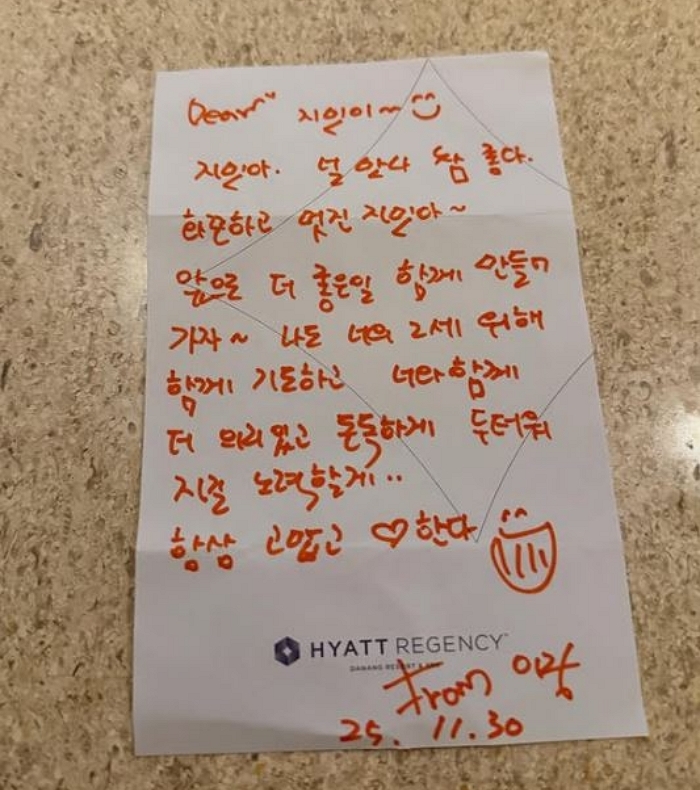 Dear" 지인이~
지인아. 널 안나 참 좋다.
화끈하고 멋진 지인아~
앞으로 더 좋은일 함께 만들어
가자~ 나도 너의 2세 위해
함께 기도하고 너라함께
더 의리있고 돈독하게 두터워
지길 노력할게..
항상 고맙고 ♡한다
HYATT REGENCY
DANANG RESORT & SPA
From 이랑
25. 11.30